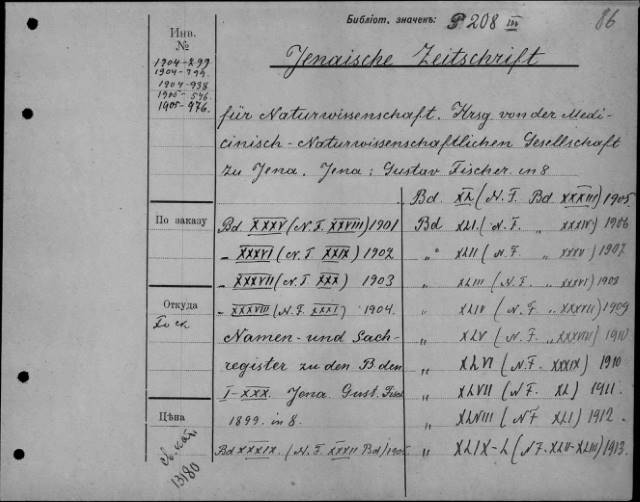 Библіот. значекъ: P 208 III
86
Инв.
№
1904-299
1904-799
1904-938
1905-546
1905-976.
Jenaische Zeitschrift
für Naturwissenschaft. Hrsg. von der Medi-
cinisch-Naturwissenschaftlichen Gesellschaft
zu Jena. Jena: Gustav Fischer in 8
По заказу
Bd XXXV (N.F. XXVIII) 1901
- XXXVI (N.F. XXIX) 1902
- XXXVII (N.F. XXX) 1903
- XXXVIII (N.F. XXXI) 1904.
Откуда
Fock
Namen- und Sach-
register zu den Bden
I-XXX. Jena Gust. Fisch
1899. in 8.
Bd XXXIX. (N.F. XXXII Bd) 1905
Цѣна
св. кат.
13180
Bd. XL (N.F. Bd XXXIII) 1905
Bd XLI. (N.F. „ XXXIV) 1906
„ XLII (N.F. „ XXXV) 1907
„ XLIII (N.F. „ XXXVI) 1908
„ XLIV (N.F. „ XXXVII) 1909
„ XLV (N.F. „ XXXVIII) 1910
„ XLVI (N.F. XXXIX) 1910
„ XLVII (N.F. XL) 1911.
„ XLVIII (N.F. XLI) 1912.
„ XLIX-L (N.F. XLII-XLIII) 1913.